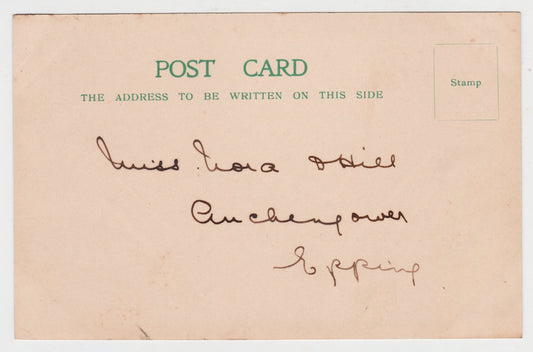 POST CARD
Stamp
THE ADDRESS TO BE WRITTEN ON THIS SIDE
Miss Nora Hill
Auchengower
Epping